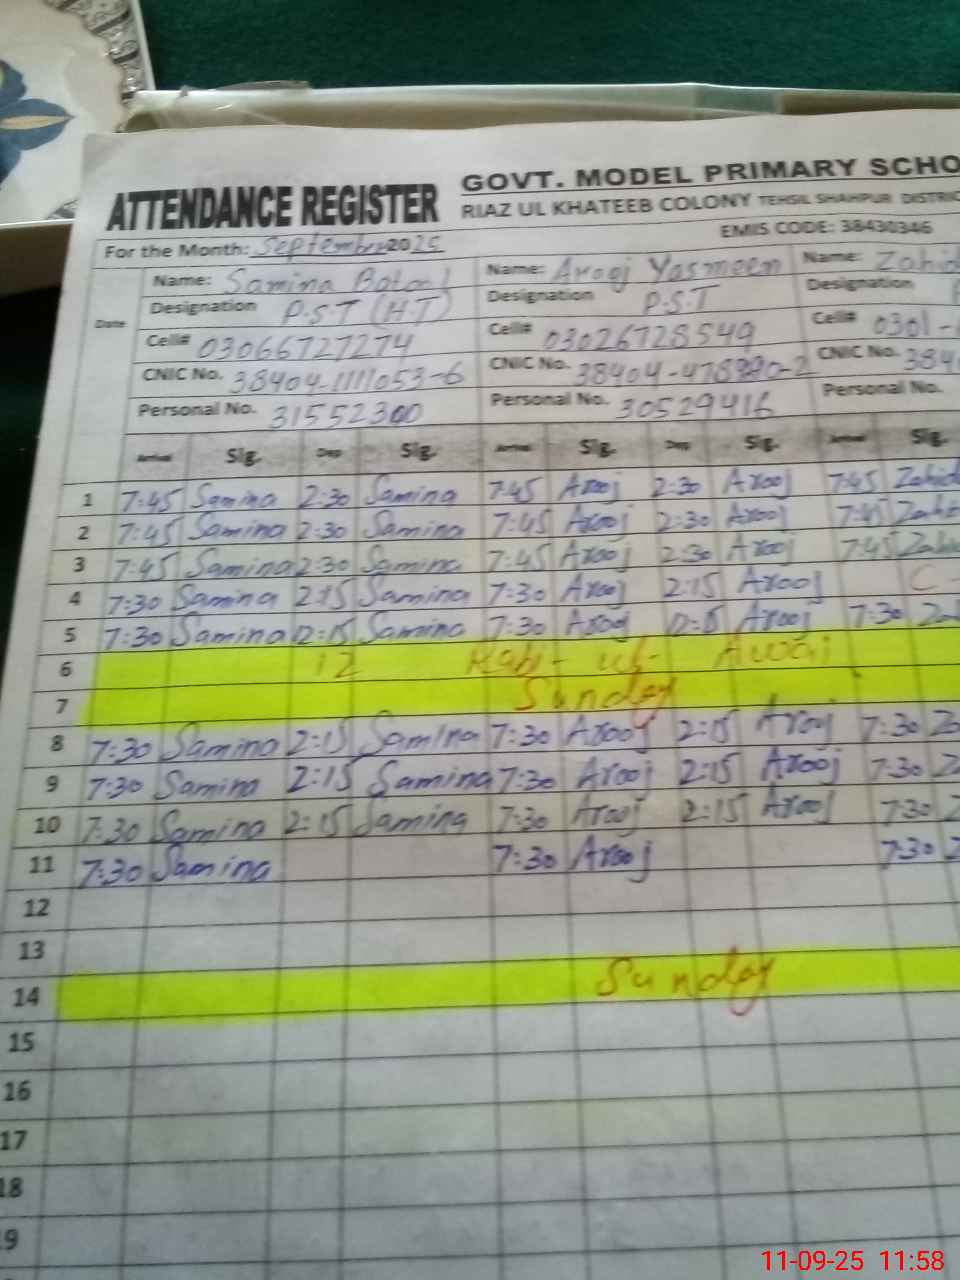 ATTENDANCE REGISTER
GOVT. MODEL PRIMARY SCHO
RIAZ UL KHATEEB COLONY TEHSIL SHAHPUR DISTRIC
For the Month: September 2025
EMIS CODE: 38430346
Date
Name: Samina Name: Arooj Yasmeen Name: Zahid
Designation P.S.T (H.T) Designation P.S.T Designation
Cell# 03066727274 Cell# 03026728549 Cell# 0301-
CNIC No. 38404-1111053-6 CNIC No. 38404- CNIC No. 384
Personal No. 31552300 Personal No. 30529416 Personal
Arrival Sig. Dep Sig. Arrival Sig. Dep Sig. Arrival Sig.
1 7:45 Samina 2:30 Samina 7:45 Arooj 2:30 Arooj 7:45 Zahid
2 7:45 Samina 2:30 Samina 7:45 Arooj 2:30 Arooj 7:45
3 7:45 Samina 2:30 Samina 7:45 Arooj 2:30 Arooj 7:45
4 7:30 Samina 2:15 Samina 7:30 Arooj 2:15 Arooj C-
5 7:30 Samina 12:15 Samina 7:30 Arooj Arooj 7:30
6 12 Rabi-ul-Awal
7 Sunday
8 7:30 Samina 2:15 Samina 7:30 Arooj 2:15 Arooj 7:30
9 7:30 Samina 2:15 Samina 7:30 Arooj 2:15 Arooj 7:30
10 7:30 Samina 2:15 Samina 7:30 Arooj 2:15 Arooj 7:30
11 7:30 Samina 7:30 Arooj 7:30
12
13
14 Sunday
15
16
17
18
9
11-09-25 11:58